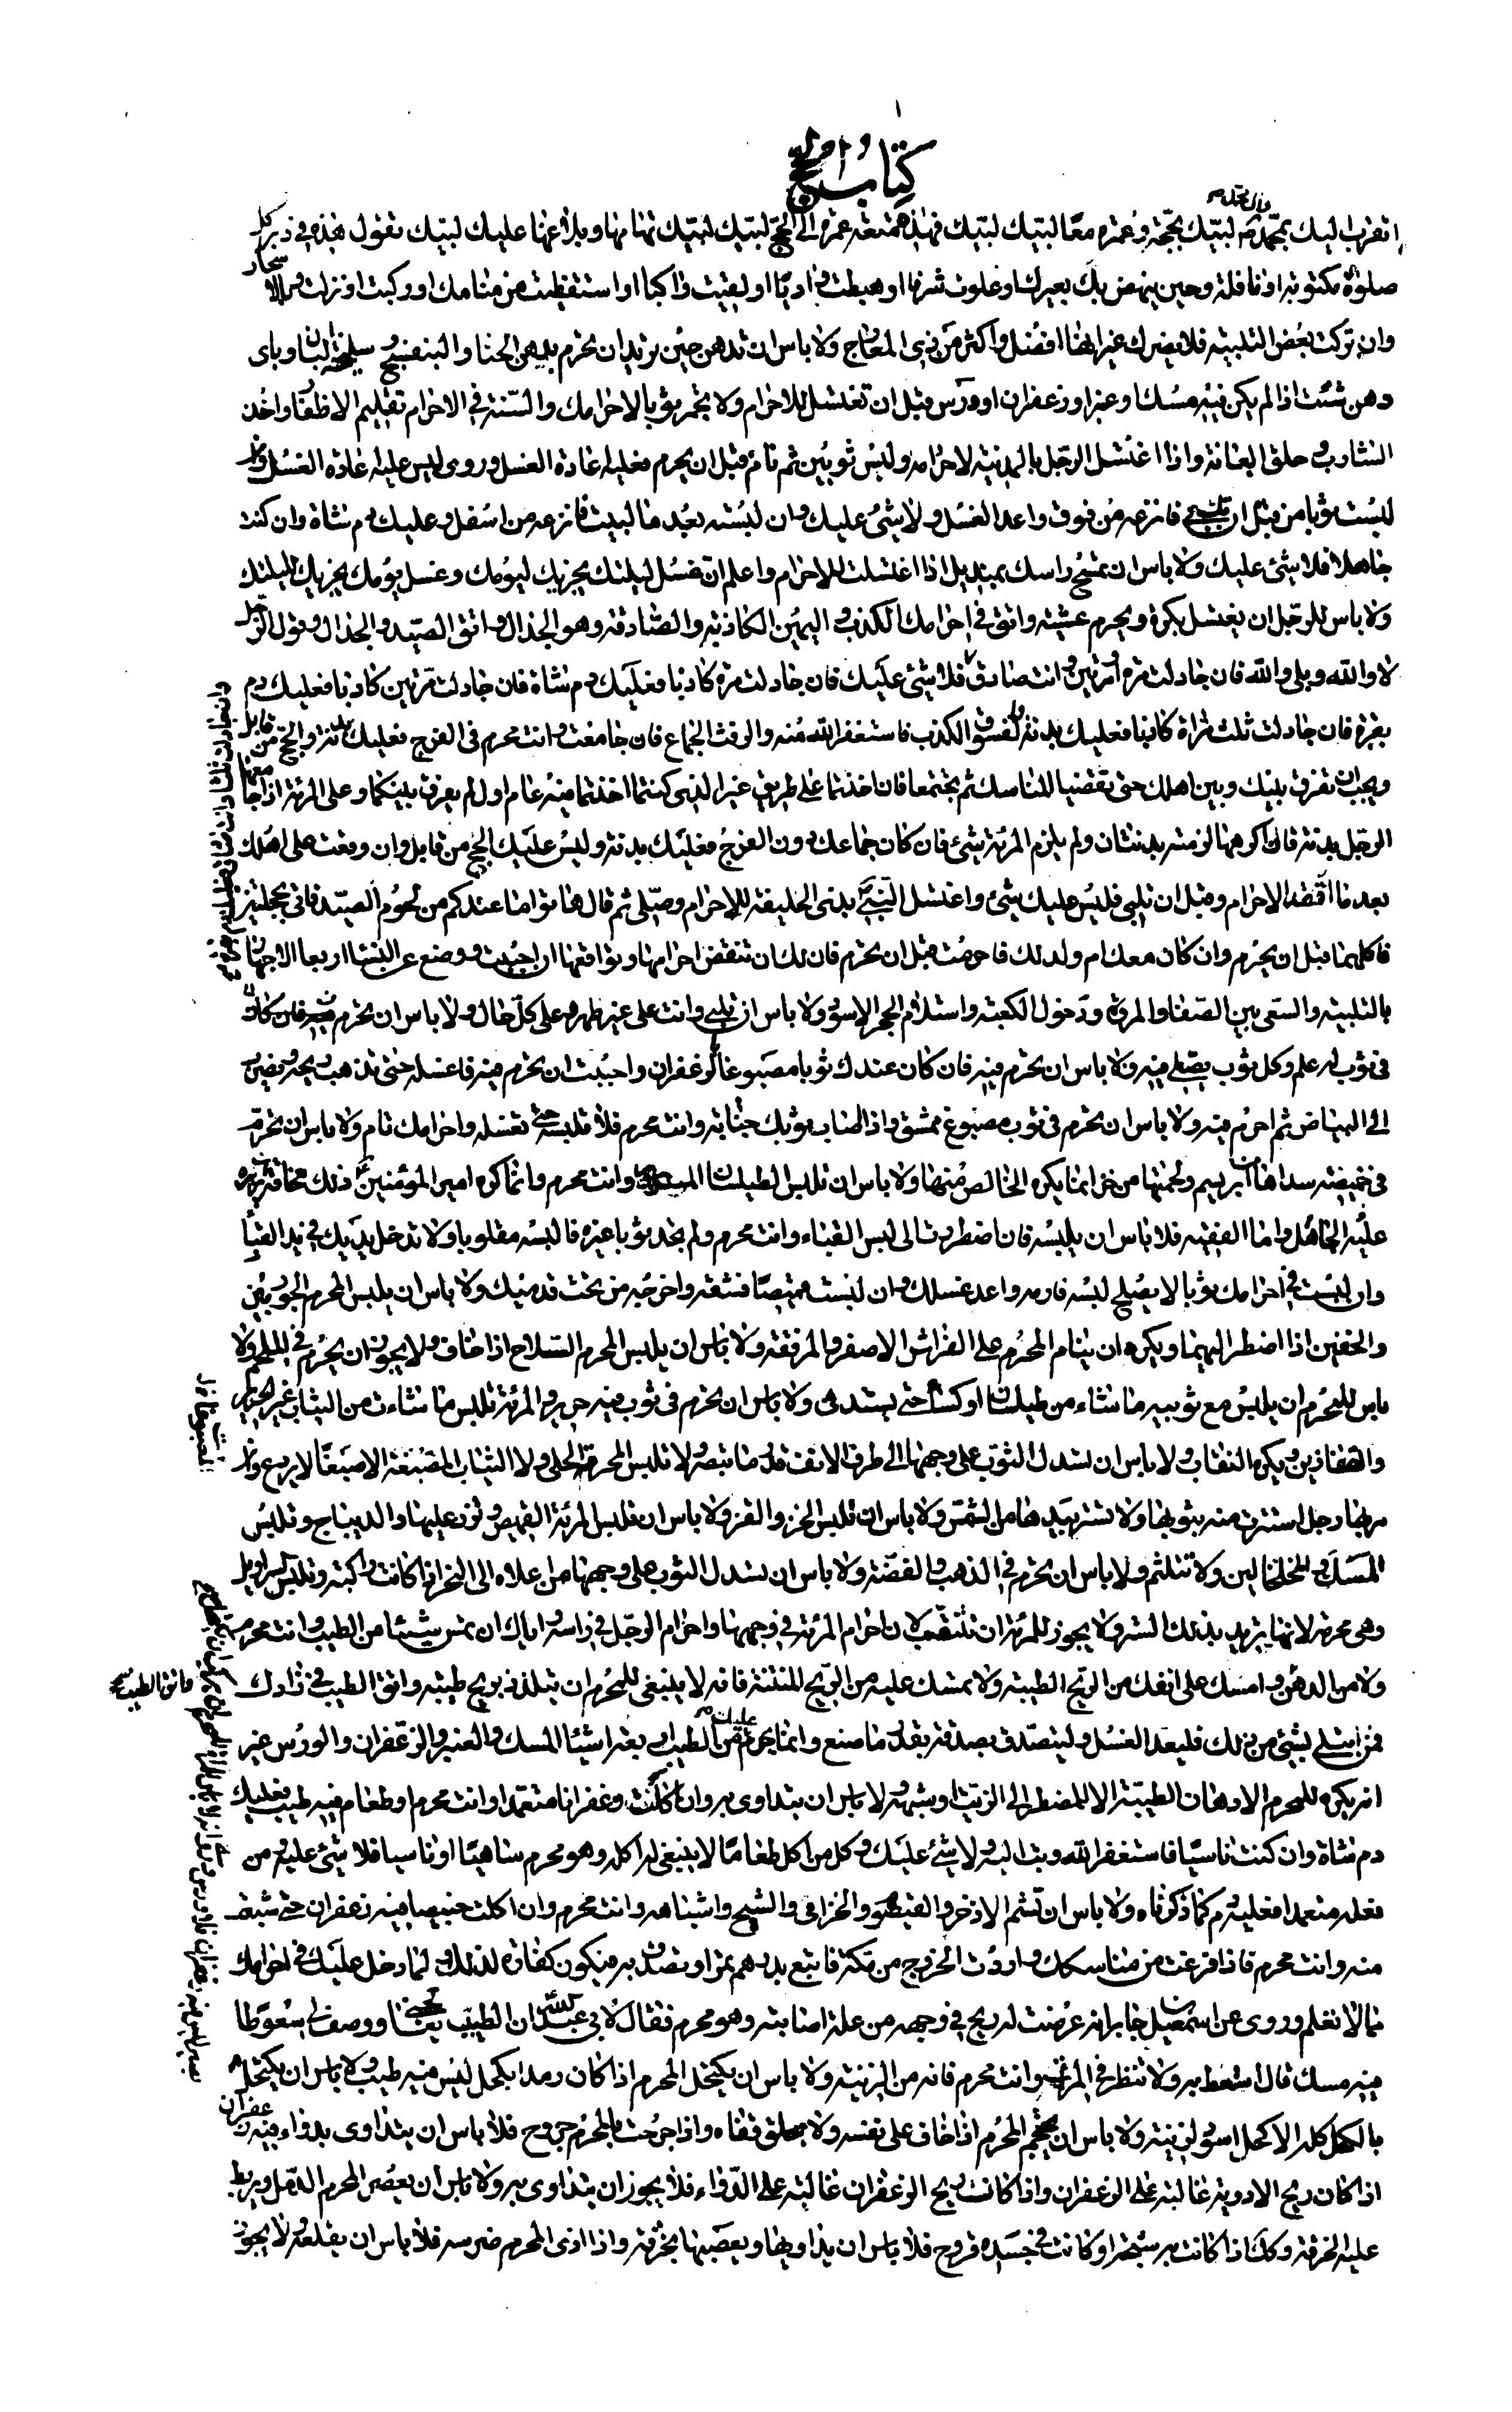 كتاب الحج
اتقرب اليك بمحمد ص لبيك بحجة وعمرة معا لبيك لبيك فهذه متعة عمرة الى الحج لبيك لبيك تمامها وبلاغها عليك لبيك تقول هذه في دبر كل
صلوة مكتوبة او نافلة وحين ينهض بك بعيرك او علوت شرفا او هبطت واديا او لقيت راكبا او استيقظت من منامك او ركبت او نزلت وبالاسحار
وان تركت بعض التلبية فلا يضرك غير انها افضل واكثر من ذي المعارج ولا باس ان تدهن حين تريد ان تحرم بدهن الحنا والبنفسج سليخة البان وباي
دهن شئت اذا لم يكن فيه مسك او عنبر او زعفران او ورس قبل ان تغتسل للاحرام ولا تجمر ثوبا لاحرامك والسنة في الاحرام تقليم الاظفار واخذ
الشارب وحلق العانة واذا اغتسل الرجل بالمدينة لاحرامه ولبس ثوبين ثم نام قبل ان يحرم فعليه اعادة الغسل وروى ليس عليه اعادة الغسل وان
لبست ثوبا من قبل ان تلبي فانزعه من فوق واعد الغسل ولا شئ عليك وان لبسته بعد ما لبيت فانزعه من اسفل وعليك دم شاة وان كنت
جاهلا فلا شئ عليك ولا باس ان تمسح راسك بمنديل اذا اغتسلت للاحرام واعلم ان غسل ليلتك يجزيك ليومك وغسل يومك يجزيك لليلتك
ولا باس للرجل ان يغتسل بكرة ويحرم عشية واتق في احرامك الكذب واليمين الكاذبة والصادقة وهو الجدال واتق الصيد والجدال وقول الرجل
لا والله وبلى والله فان جادلت مرة او مرتين وانت صادق فلا شئ عليك فان جادلت مرة كاذبا فعليك دم شاة فان جادلت مرتين كاذبا فعليك دم
بقرة فان جادلت ثلث مراة كاذبا فعليك بدنة والفسوق الكذب فاستغفر الله منه والرفث الجماع فان جامعت وانت محرم في الفرج فعليك بدنة والحج من قابل
ويجب ان تفرق بينك وبين اهلك حتى تقضيا المناسك ثم تجتمعا فان اخذتما على طريق غير الذي كنتما اخذتما فيه عام اول لم يفرق بينكما وعلى المرئة اذا جامعها
الرجل بدنة فان اكرهها لزمته بدنتان ولم يلزم المرئة شئ فان كان جماعك دون الفرج فعليك بدنة وليس عليك الحج من قابل وان وقعت على اهلك
بعد ما الاحرام وقبل ان تلبي فليس عليك شئ واغتسل النبي ص بذي الحليفة للاحرام وصلى ثم قال هاتوا ما عندكم من لحوم الصيد فاتي بحجلتين
فاكلهما قبل ان يحرم وان كان معك ام ولد لك فاحرمت قبل ان تحرم فان لك ان تنقض احرامها وتواقعها ان احببت ووضع عن النساء اربعا الاجهار
بالتلبية والسعى بين الصفا والمروة ودخول الكعبة واستلام الحجر الاسود ولا باس ان تلبي وانت على غير طهر وعلى كل حال ولا باس ان تحرم
في ثوب له علم وكل ثوب يصلى فيه فلا باس ان تحرم فيه فان كان عندك ثوبا مصبوغا بالزعفران واحببت ان تحرم فيه فاغسله حتى تذهب ريحه ويضرب
الى البياض ثم احرم فيه ولا باس ان تحرم في ثوب مصبوغ بمشق واذا اصاب ثوبك جنابة وانت محرم فلا تلبسه حتى تغسله واحرامك تام ولا باس ان تحرم
في خميصة سداها ابريسم ولحمتها من خز انما يكره الخالص منها ولا باس ان تلبس الطيلسان وانت محرم وانما كره امير المؤمنين ع ذلك مخافة ان يزره
عليه الجاهل واما الفقيه فلا باس ان يلبسه فان اضطررت الى لبس القباء وانت محرم ولم تجد ثوبا غيره فالبسه مقلوبا ولا تدخل يديك في يد القباء
وان لبست في احرامك ثوبا لا يصلح لبسه فارمه واعد غسلك وان لبست قميصا فشقه واخرجه من تحت قدميك ولا باس ان يلبس المحرم الجوربين
والخفين اذا اضطر اليهما ويكره ان ينام المحرم على الفراش الاصفر والمرفقة ولا باس ان يلبس المحرم السلاح اذا خاف ولا يجوز ان يحرم في الملحم ولا
باس للمحرم ان يلبس مع ثوبيه ما شاء من طيلسان او كساء حتى يستدفى ولا باس ان تحرم في ثوب فيه حرير والمرئة تلبس ما شاءت من الثياب غير الحرير
والقفازين ويكره النقاب ولا باس ان تسدل الثوب على وجهها الى طرف الانف قدر ما تبصر ولا تلبس المحرمة الحلى ولا الثياب المصبغة الا صبغا لا يردع وان
مر بها رجل استترت منه بثوبها ولا تستر بيدها من الشمس ولا باس ان تلبس الخز والقز ولا باس ان تلبس المرئة القميص وتزر عليها والديباج وتلبس
المسك والخلخالين ولا تتلثم ولا باس ان تحرم في الذهب والفضة ولا باس ان تسدل الثوب على وجهها من اعلاه الى النحر اذا كانت راكبة وتلبس السراويل
وهي محرمة لانها تريد بذلك الستر ولا يجوز للمرئة ان تتنقب لان احرام المرئة في وجهها واحرام الرجل في راسه واياك ان تمس شيئا من الطيب وانت محرم
ولا من الدهن وامسك على انفك من الريح الطيبة ولا تمسك عليه من الريح المنتنة فانه لا ينبغي للمحرم ان يتلذذ بريح طيبة واتق الطيب في زادك
فمن ابتلى بشئ من ذلك فليعد الغسل وليتصدق بصدقة بقدر ما صنع وانما يحرم عليك من الطيب اربعة اشياء المسك والعنبر والزعفران والورس غير
انه يكره للمحرم الادهان الطيبة الا المضطر الى الزيت وشبهه لا باس ان يتداوى به وان اكلت زعفرانا متعمدا وانت محرم او طعام فيه طيب فعليك
دم شاة وان كنت ناسيا فاستغفر الله وتب اليه ولا شئ عليك وكل من اكل طعاما لا ينبغي له اكله وهو محرم ساهيا او ناسيا فلا شئ عليه ومن
فعله متعمدا فعليه دم كما ذكرناه ولا باس ان تشم الاذخر والقيصوم والخزامى والشيح واشباهه وانت محرم وان اكلت خبيصا فيه زعفران حتى شبعت
منه وانت محرم فاذا فرغت من مناسكك واردت الخروج من مكة فابتع بدرهم تمرا وتصدق به فيكون كفارة لذلك ولما دخل عليك في احرامك
مما لا تعلم وروى عن اسمعيل بن جابر انه عرضت له ريح في وجهه من علة اصابته وهو محرم فقال لابي عبد الله ان الطبيب الذي يعالجني وصف لي سعوطا
فيه مسك قال استعط به ولا تنظر في المرءة وانت محرم فانه من الزينة ولا باس ان يكتحل المحرم اذا كان رمدا بكحل ليس فيه طيب ولا باس ان يكتحل
بالكحل كله الا كحل اسود لزينة ولا باس ان يحتجم المحرم اذا خاف على نفسه ولا يحلق قفاه واذا جرحت بالمحرم جروح فلا باس ان يتداوى بدواء فيه زعفران
اذا كان ريح الادوية غالبة على الزعفران واذا كانت ريح الزعفران غالبة على الدواء فلا يجوز ان يتداوى به ولا باس ان يعصر المحرم الدمل ويربط
عليه الخرقة وكك اذا كانت به شجة او كانت في جسده قروح فلا باس ان يداويها ويعصبها بخرقة واذا اذى المحرم ضرسه فلا باس ان يقلعه ولا يجوز
واتق الطيب